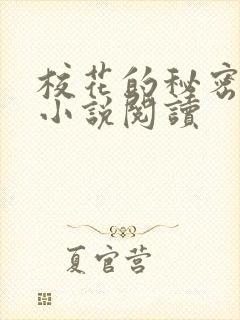 校花的秘密
小說閱讀
夏官营